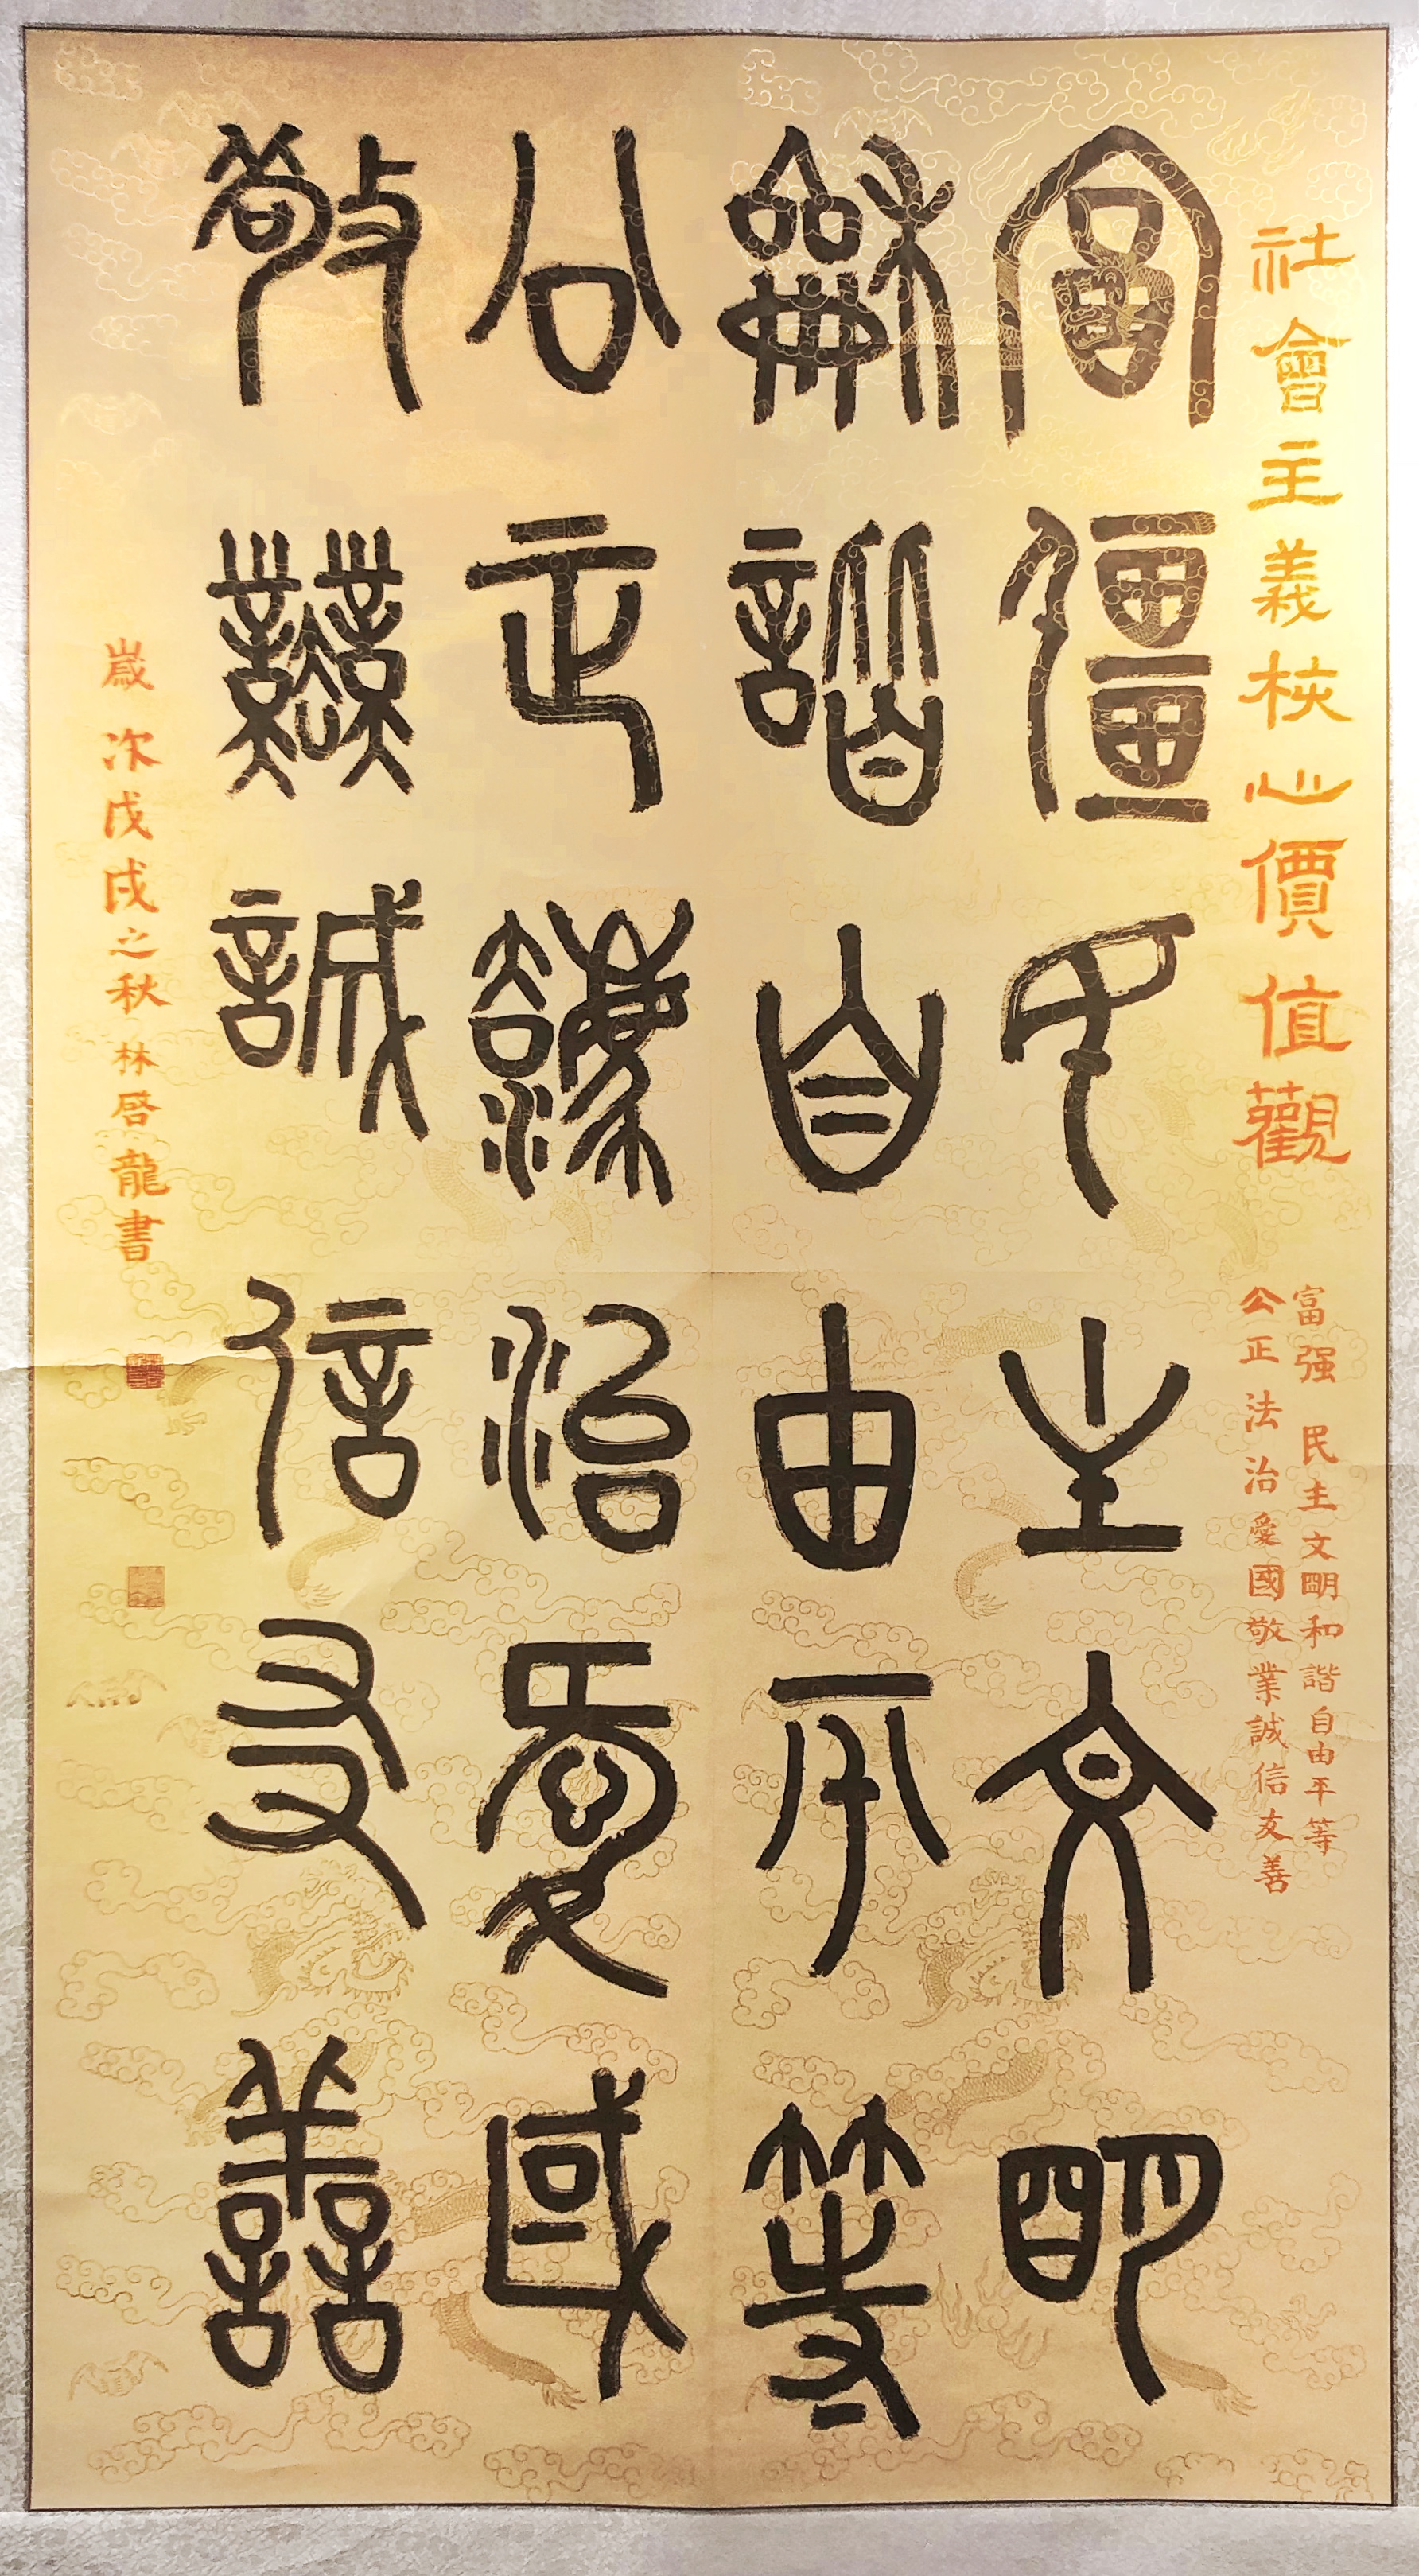 社會主義核心價值觀
富强 民主文明和諧自由平等
公正法治愛國敬業誠信友善
富彊民主文明
龢諧自由平等
公正灋治愛國
敬業誠信友善
歲次戊戌之秋 林啓龍書